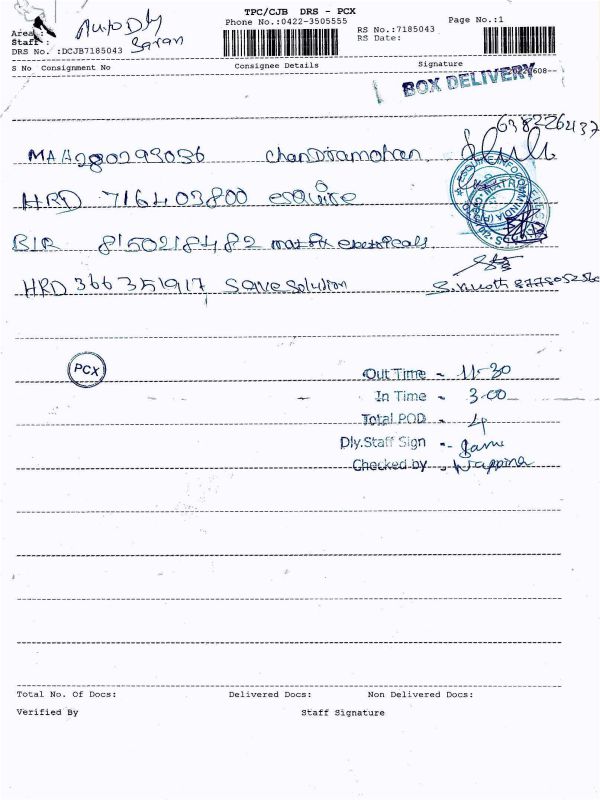 TPC/CJB DRS - PCX
Phone No.:0422-3505555
Page No.:1
Auto Dly
Area :
Staff : Saran
DRS No. :DCJB7185043
RS No.:7185043
RS Date:
S No Consignment No Consignee Details Signature
BOX DELIVERY
6382262137
MAA280293056 Chandramohan
HRD 716403800 esquire
BIR 8150218482 matrix electricals
HRD 366351917 Save Solution
PCX
Out Time - 11-30
In Time - 3-00
Total POD - 4
Dly.Staff Sign -
Checked by -
Total No. Of Docs: Delivered Docs: Non Delivered Docs:
Verified By Staff Signature